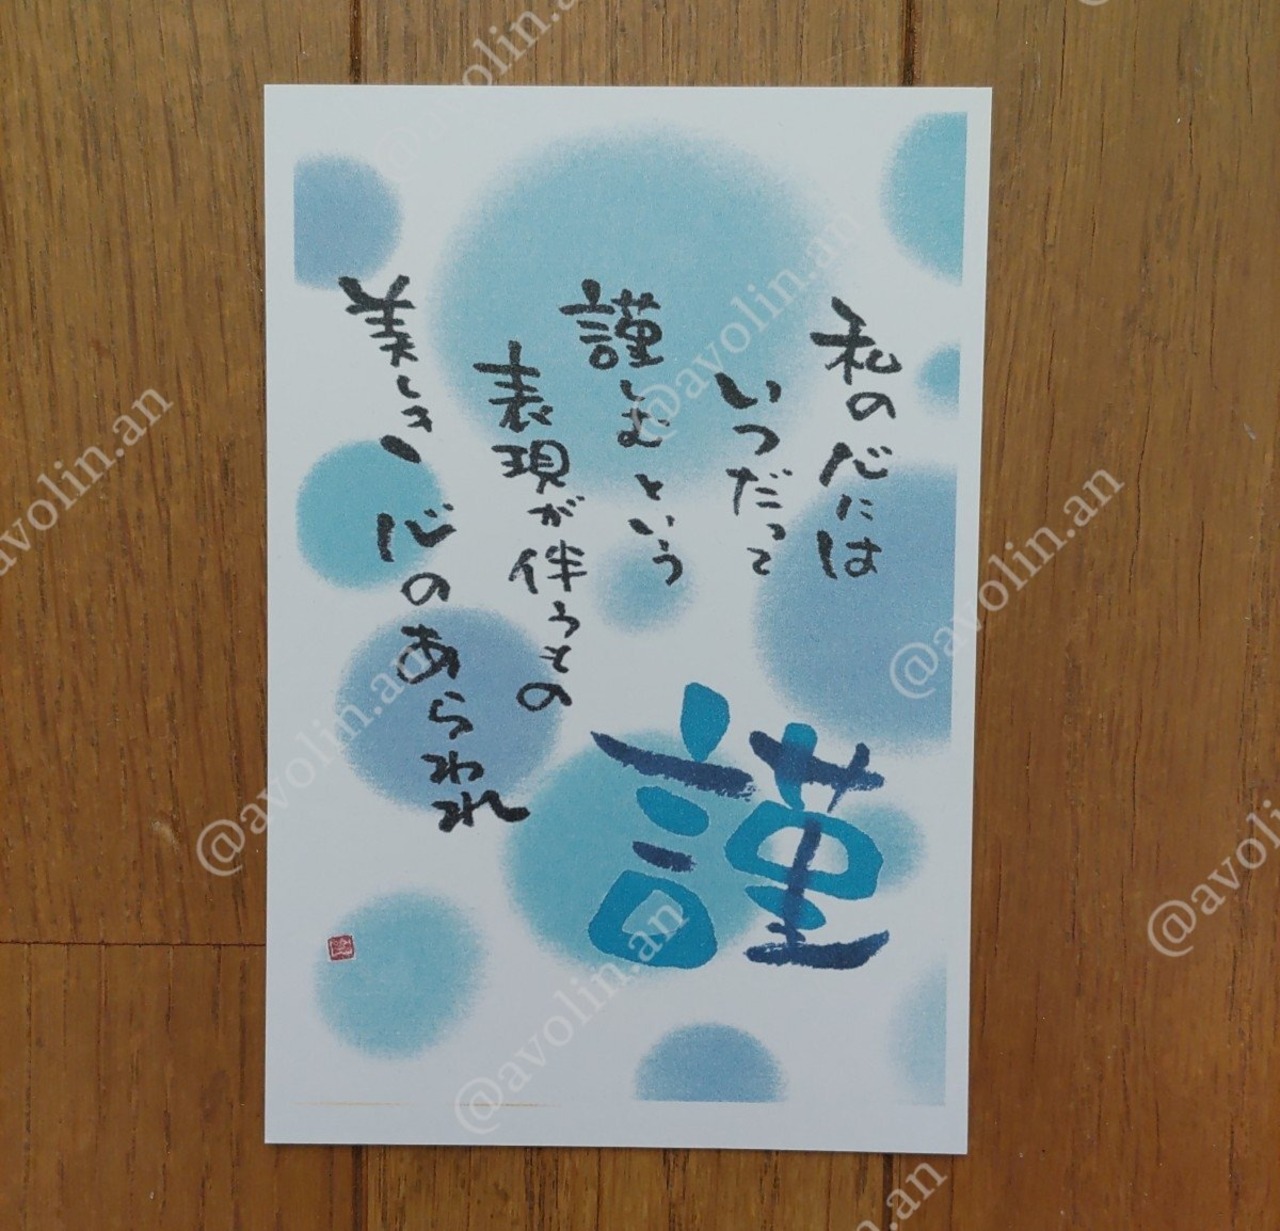 私の心には
いつだって
謹しむという
表現が伴うもの
美しき心のあらわれ
謹
@avolin.an
@avolin.an
@avolin.an
@avolin.an
@avolin.an
@avolin.an
@avolin.an
@avolin.an